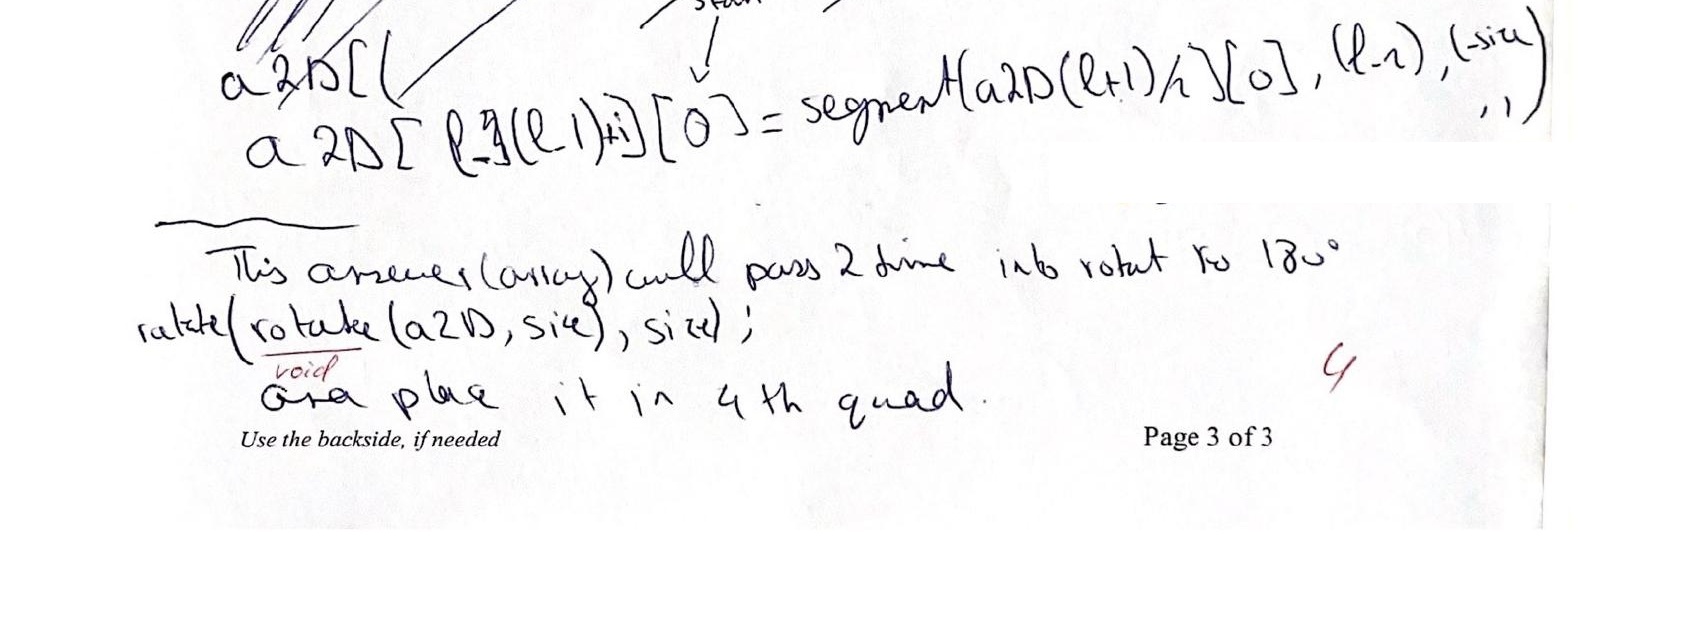 a2D[(
a2D[ l-1](l-1)+i][0] = segment(a2D(l+1)/2][0], (l-2), (-size
,1)
This answer(array) will pass 2 time into rotat to 180°
ratate(rotate(a2D, size), size);
void
ana place it in 4th quad.
4
Use the backside, if needed
Page 3 of 3